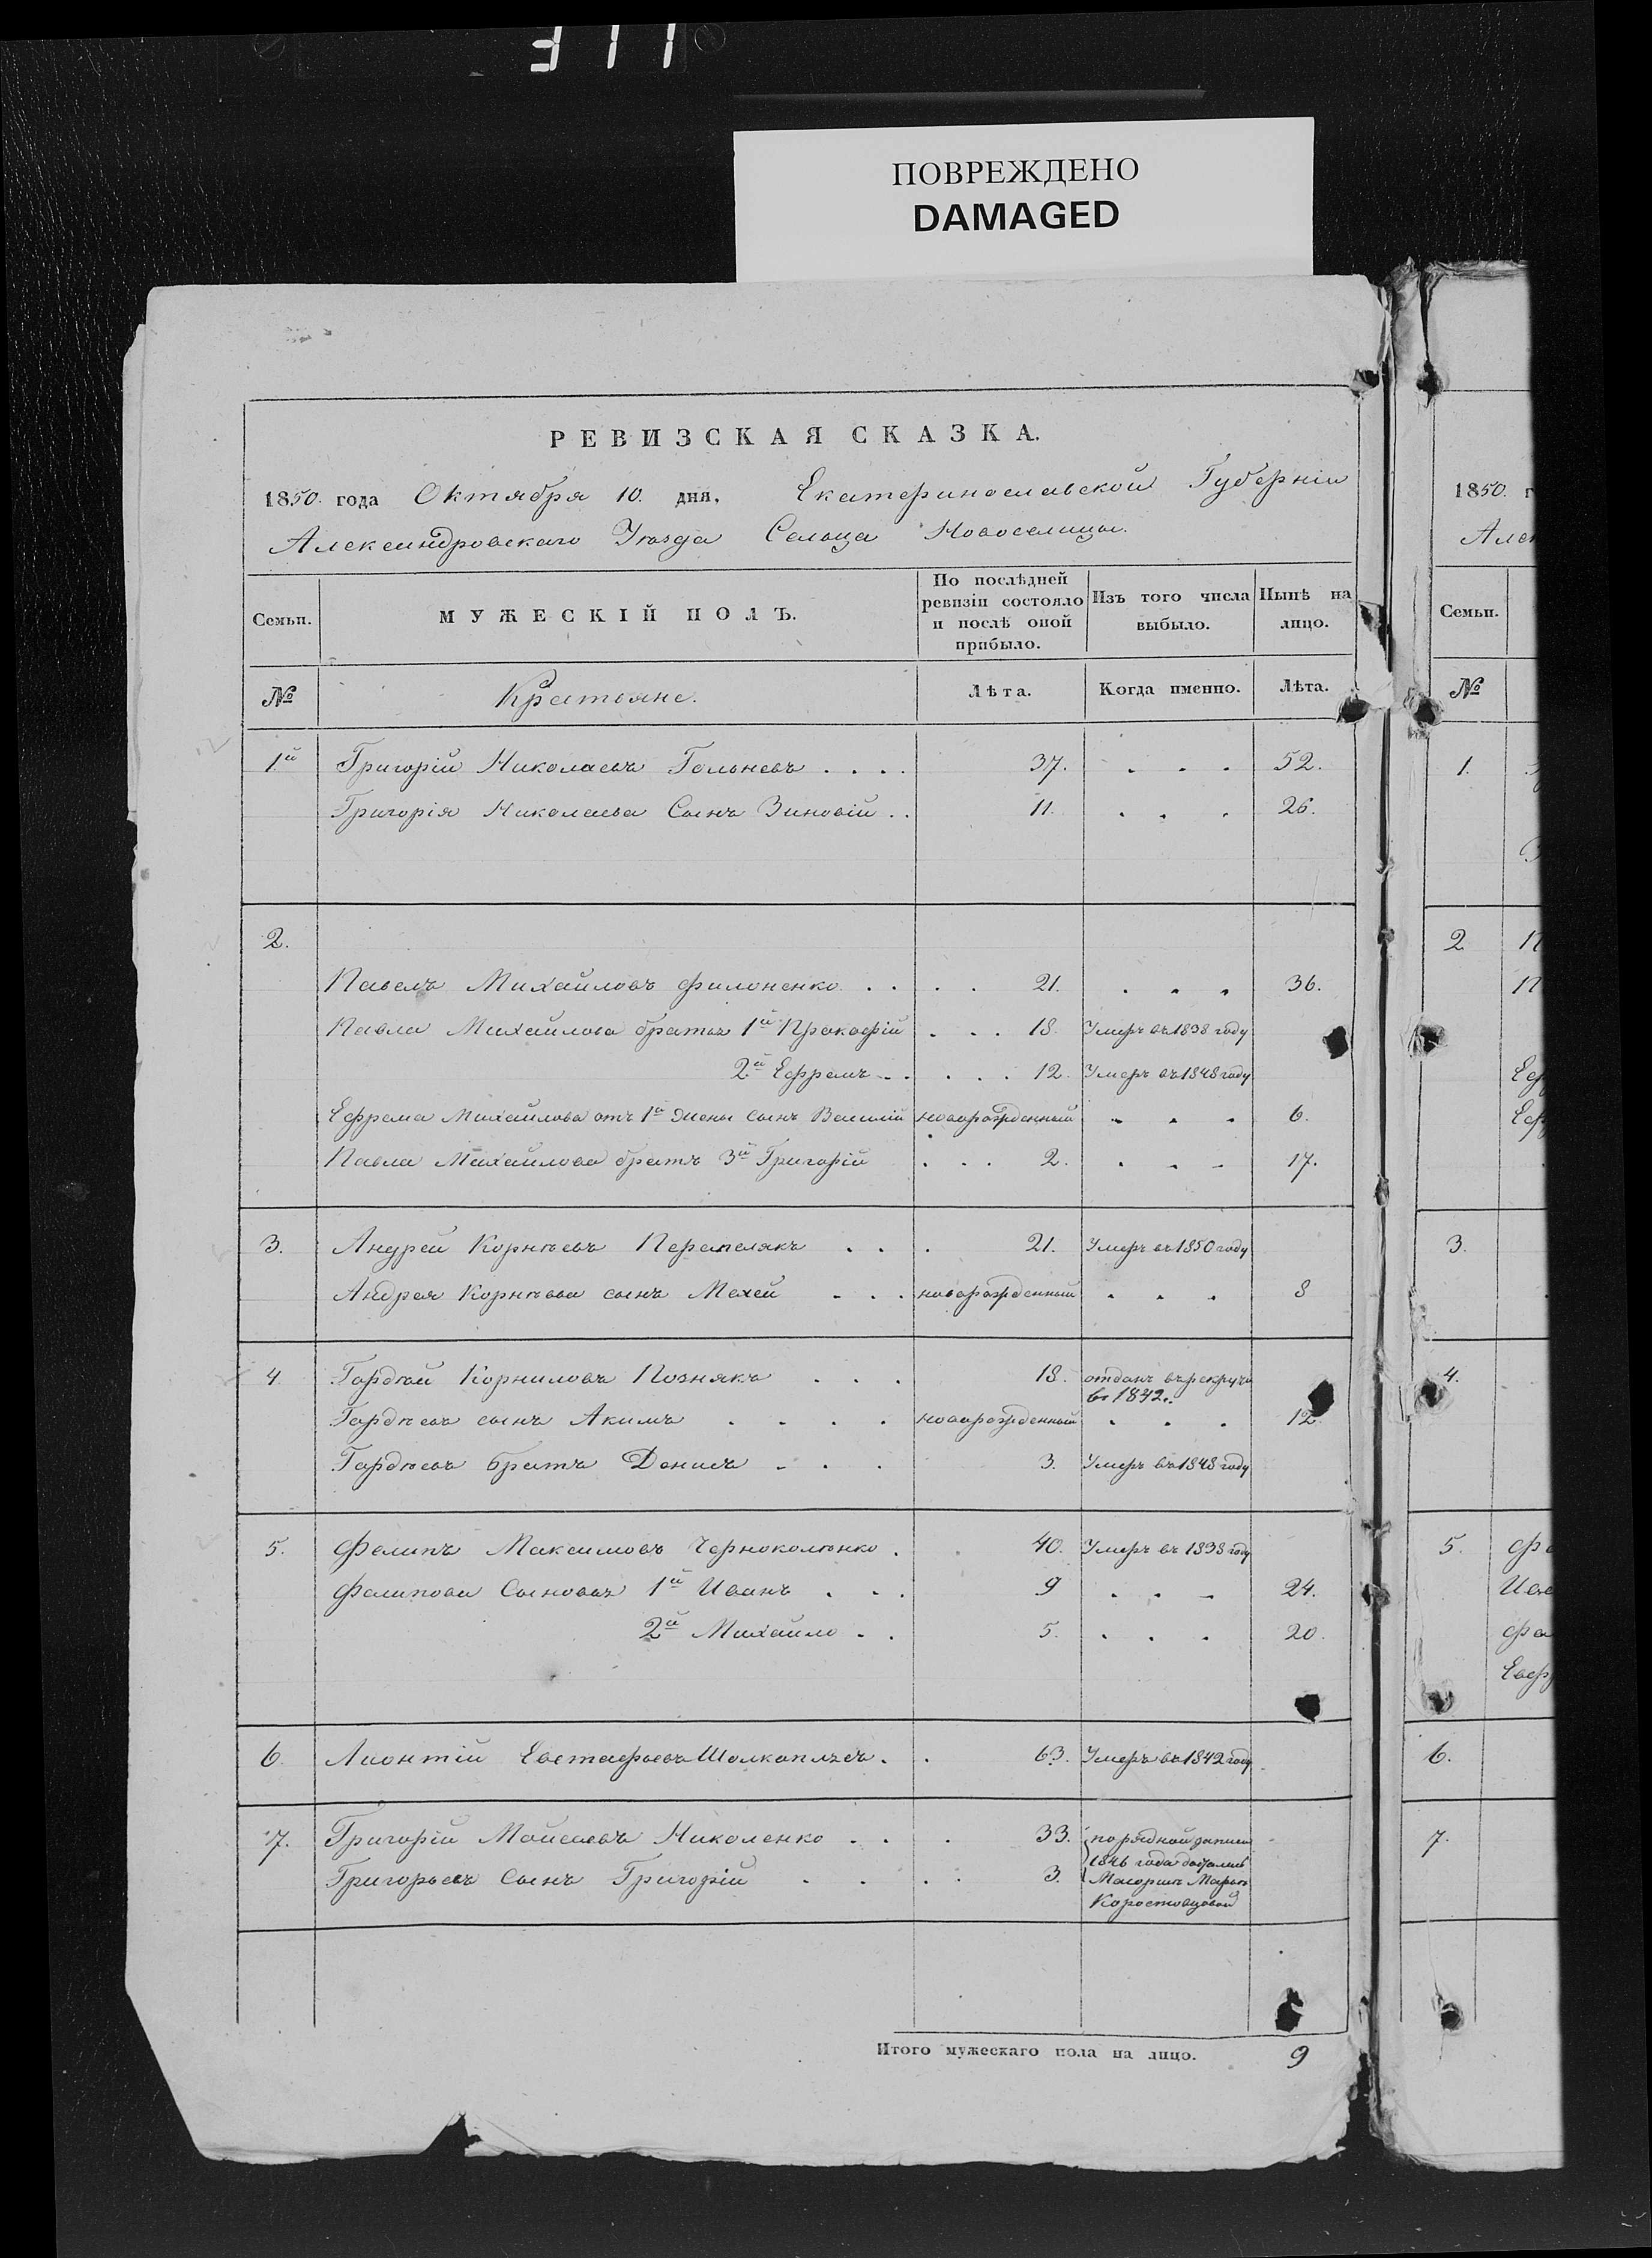 311
ПОВРЕЖДЕНО
DAMAGED
РЕВИЗСКАЯ СКАЗКА.
1850. года Октября 10. дня, Екатеринославской Губерніи
Александровскаго Уѣзда Сельца Новоселицы.
Семьи. МУЖЕСКІЙ ПОЛЪ. По послѣдней ревизіи состояло и послѣ оной прибыло. Изъ того числа выбыло. Нынѣ на лицо.
№ Крестьяне. Лѣта. Когда именно. Лѣта.
1й Григорій Николаевъ Гольневъ . . . . 37. . . . 52.
Григорія Николаева Сынъ Зиновій . . 11. . . . 26.
2.
Павелъ Михайловъ Филоненко . . . . 21. . . . 36.
Павла Михайлова братья 1й Прокофій . . . 18. Умеръ въ 1838 году
2й Ефремъ . . . . . 12. Умеръ въ 1848 году
Ефрема Михайлова отъ 1й жены сынъ Василій новорожденный . . . 6.
Павла Михайлова братъ 3й Григорій . . . 2. . . . 17.
3. Андрей Корнѣевъ Перепелякъ . . . 21. Умеръ въ 1850 году
Андрея Корнѣева сынъ Мехей . . . новорожденный . . . 8
4. Гордѣй Корниловъ Познякъ . . . 18. отданъ въ рекруты
въ 1842.
Гордѣевъ сынъ Акимъ . . . . новорожденный . . . 12.
Гордѣевъ братъ Денисъ . . . 3. Умеръ въ 1848 году
5. Филипъ Максимовъ Черноколѣнко . . 40. Умеръ въ 1838 году
Филипова Сыновья 1й Иванъ . . . 9 . . . 24.
2й Михайло . . 5. . . . 20.
6. Леонтій Евстафьевъ . . 63. Умеръ въ 1842 году.
7. Григорій Мойсеевъ Николенко . . . 33. по рядной записи
1846 года
Григорьевъ Сынъ Григорій . . . . 3. Маіоршѣ Марьѣ
Коростовцовой
Итого мужескаго пола на лицо. 9
1850. г
Алек
Семьи.
№
1.
2 П
П
Еф
Еф
3.
4.
5. Фи
Ива
Фи
Евф
6.
7.